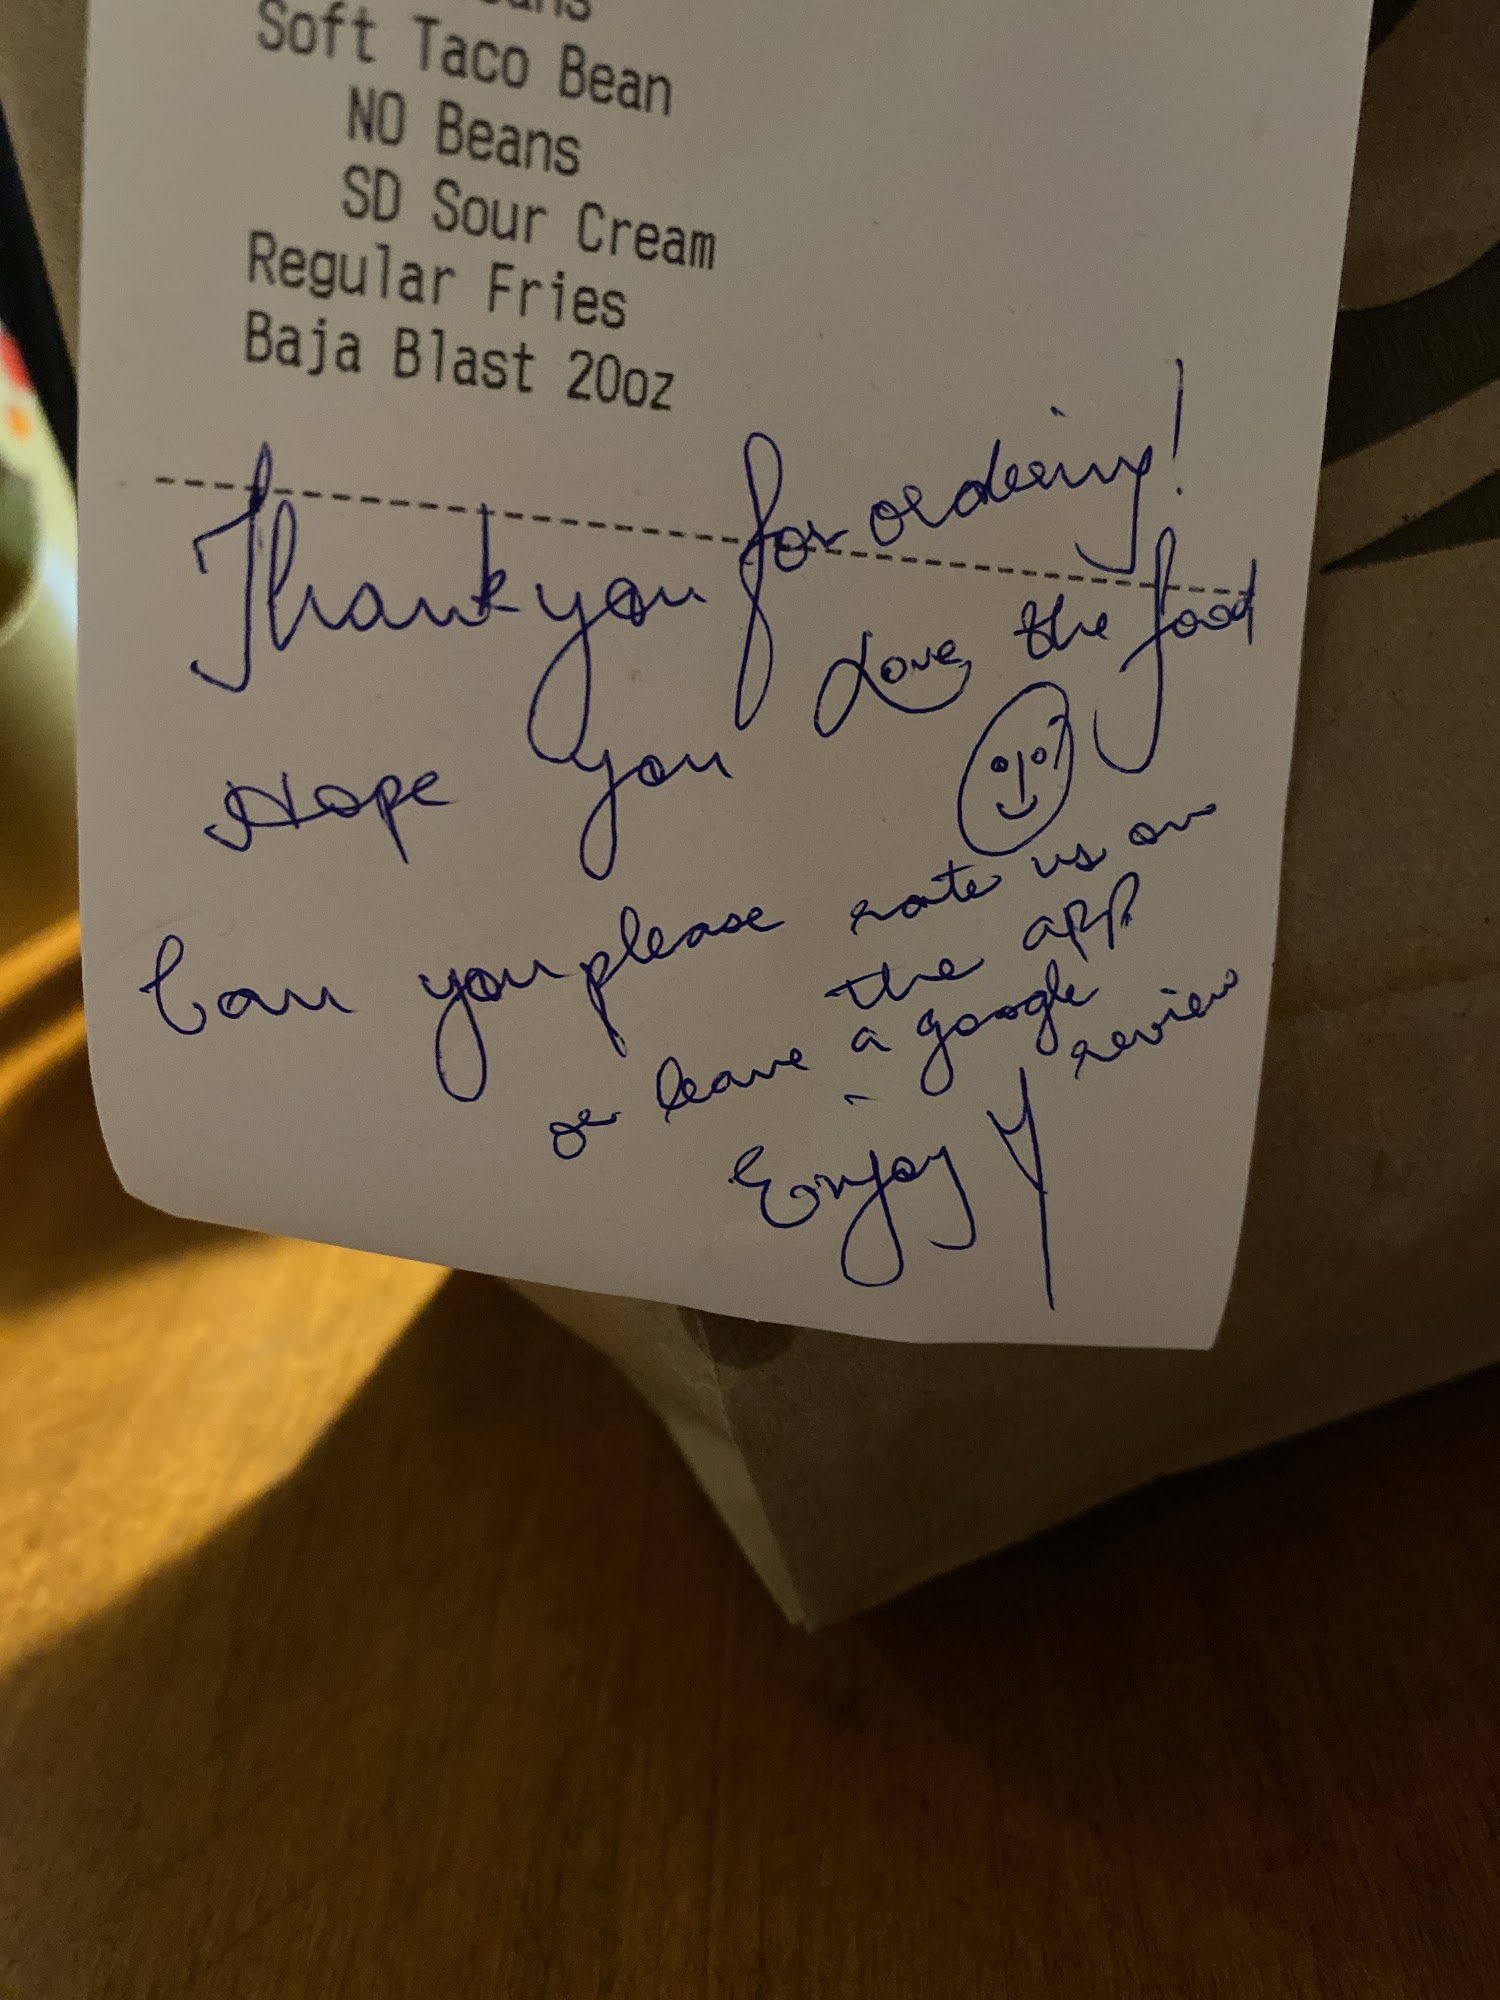 Soft Taco Bean
NO Beans
SD Sour Cream
Regular Fries
Baja Blast 20oz
Thank you for ordering!
Hope you Love the food
Can you please rate us on
the app
or leave a google
review
Enjoy!